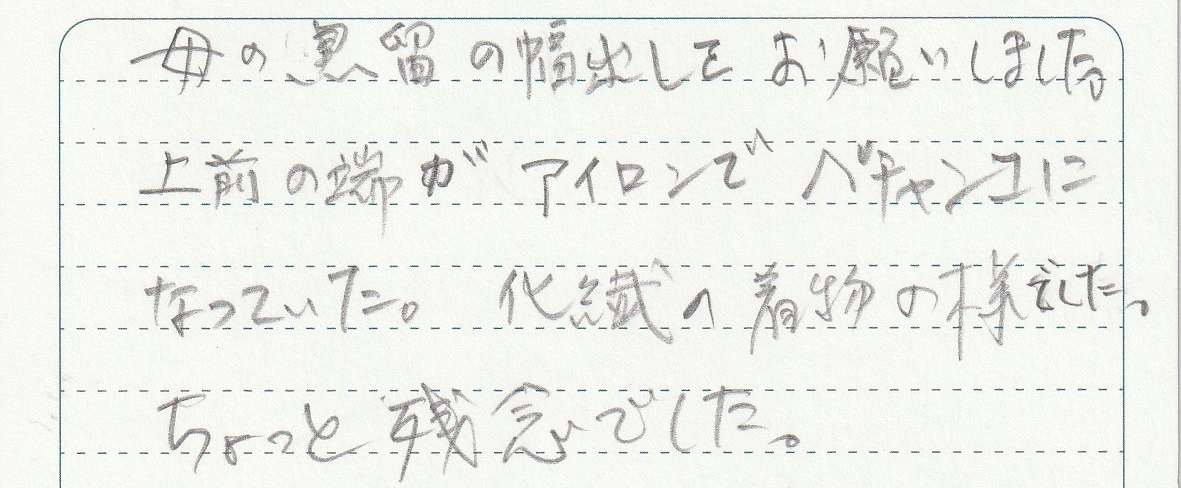 母の黒留の幅出しをお願いしました。
上前の端がアイロンでペチャンコに
なっていた。化繊の着物の様でした。
ちょっと残念でした。